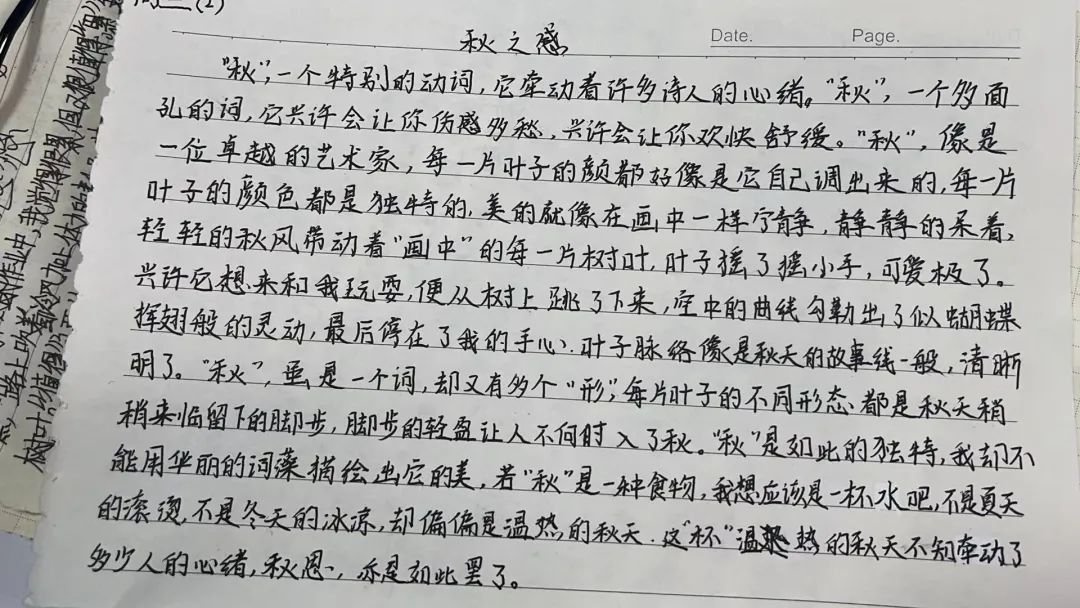 (2)
秋之感
Date.
Page.
"秋",一个特别的动词,它牵动着许多诗人的心绪。"秋",一个多面
孔的词,它兴许会让你伤感多愁,兴许会让你欢快舒缓。"秋",像是
一位卓越的艺术家,每一片叶子的颜都好像是它自己调出来的,每一片
叶子的颜色都是独特的,美的就像在画中一样宁静,静静的呆着,
轻轻的秋风带动着"画中"的每一片树叶,叶子摇了摇小手,可爱极了。
兴许它想来和我玩耍,便从树上跳了下来,空中的曲线勾勒出了似蝴蝶
挥翅般的灵动,最后停在了我的手心.叶子脉络像是秋天的故事线一般,清晰
明了。"秋",虽是一个词,却又有多个"形",每片叶子的不同形态都是秋天稍
稍来临留下的脚步,脚步的轻盈让人不何时入了秋。"秋"是如此的独特,我却不
能用华丽的词藻描绘出它的美,若"秋"是一种食物,我想应该是一杯水吧,不是夏天
的滚烫,不是冬天的冰凉,却偏偏是温热的秋天.这"杯"温热的秋天不知牵动了
多少人的心绪,秋思、亦是如此罢了。